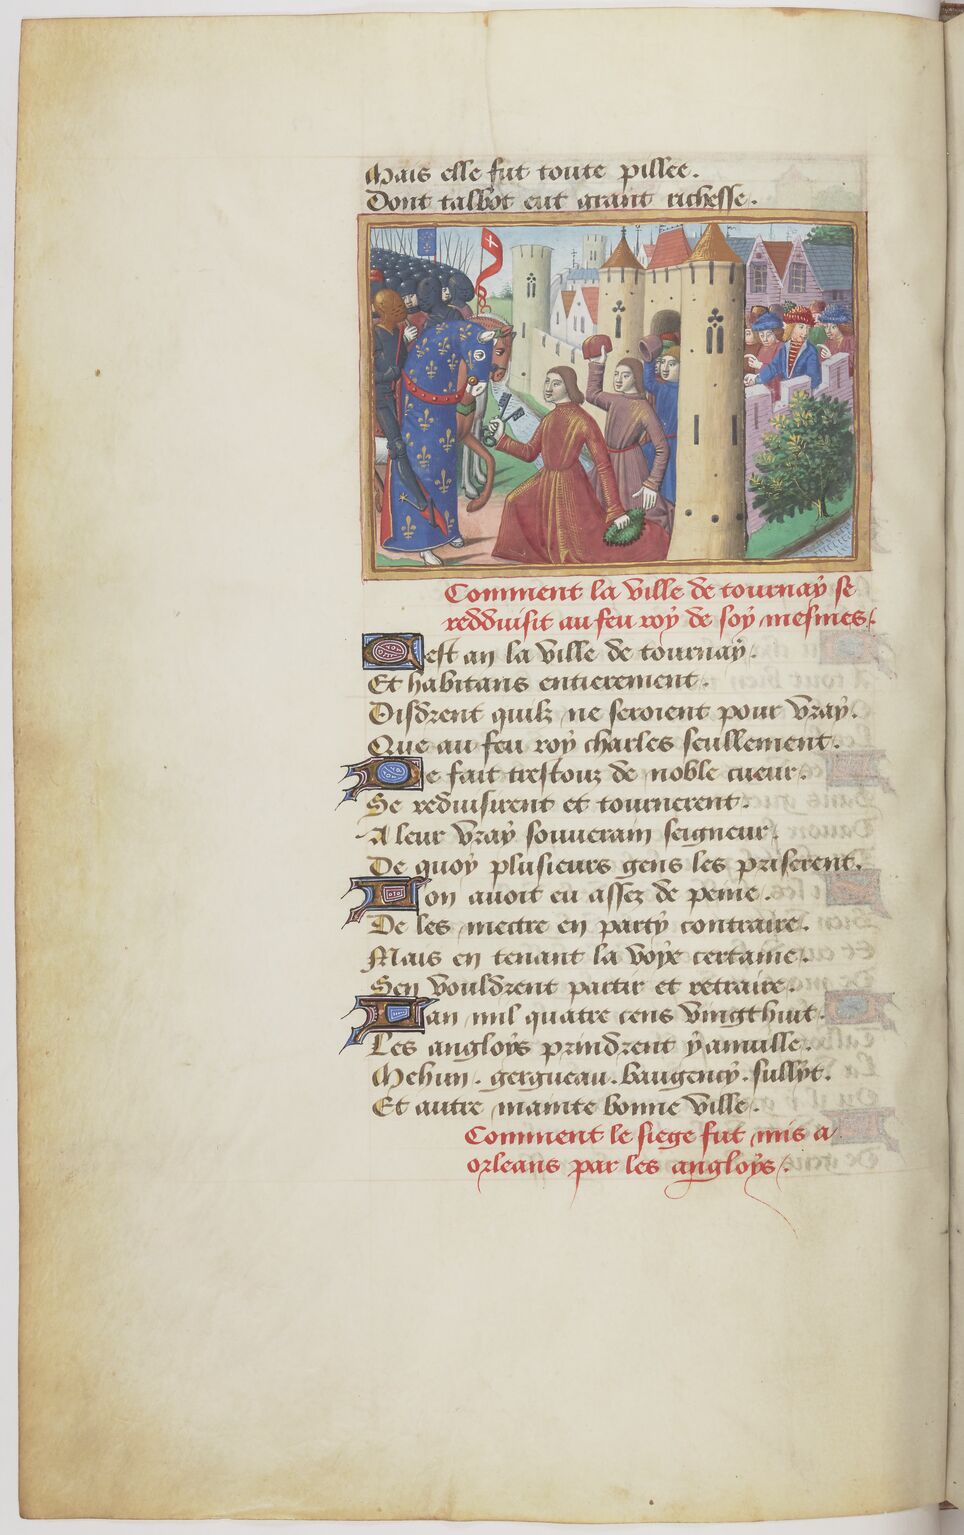 Mais elle fut toute pillee.
Dont talbot eut grant richesse.
Comment la ville de tournay se
redduisit au feu roy de soy mesmes.
Cest an la ville de tournay.
Et habitans entierement.
Disdrent quilz ne seroient pour vray.
Que au feu roy charles seullement.
De fait trestouz de noble cueur.
Se reduisirent et tournerent.
A leur vray souverain seigneur.
De quoy plusieurs gens les priserent.
Lon avoit eu assez de peine.
De les mectre en party contraire.
Mais en tenant la voye certaine.
Sen vouldrent partir et retraire.
Lan mil quatre cens vingthuit.
Les angloys prindrent yanville.
Mehun. gergueau. baugency. sullyt.
Et autre mainte bonne ville.
Comment le siege fut mis a
orleans par les angloys.